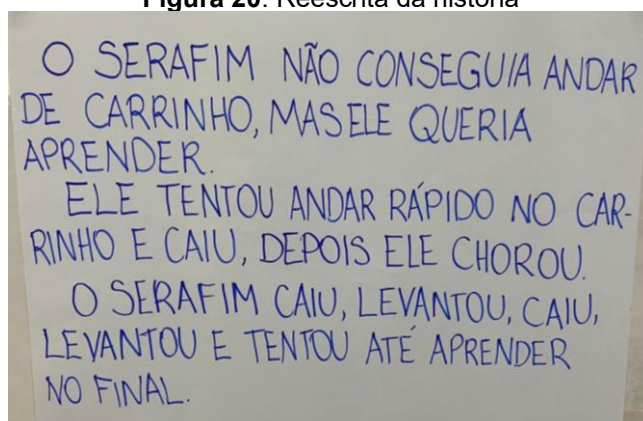 Figura 20: Reescrita da história
O SERAFIM NÃO CONSEGUIA ANDAR
DE CARRINHO, MAS ELE QUERIA
APRENDER.
ELE TENTOU ANDAR RÁPIDO NO CAR-
RINHO E CAIU, DEPOIS ELE CHOROU.
O SERAFIM CAIU, LEVANTOU, CAIU,
LEVANTOU E TENTOU ATÉ APRENDER
NO FINAL.